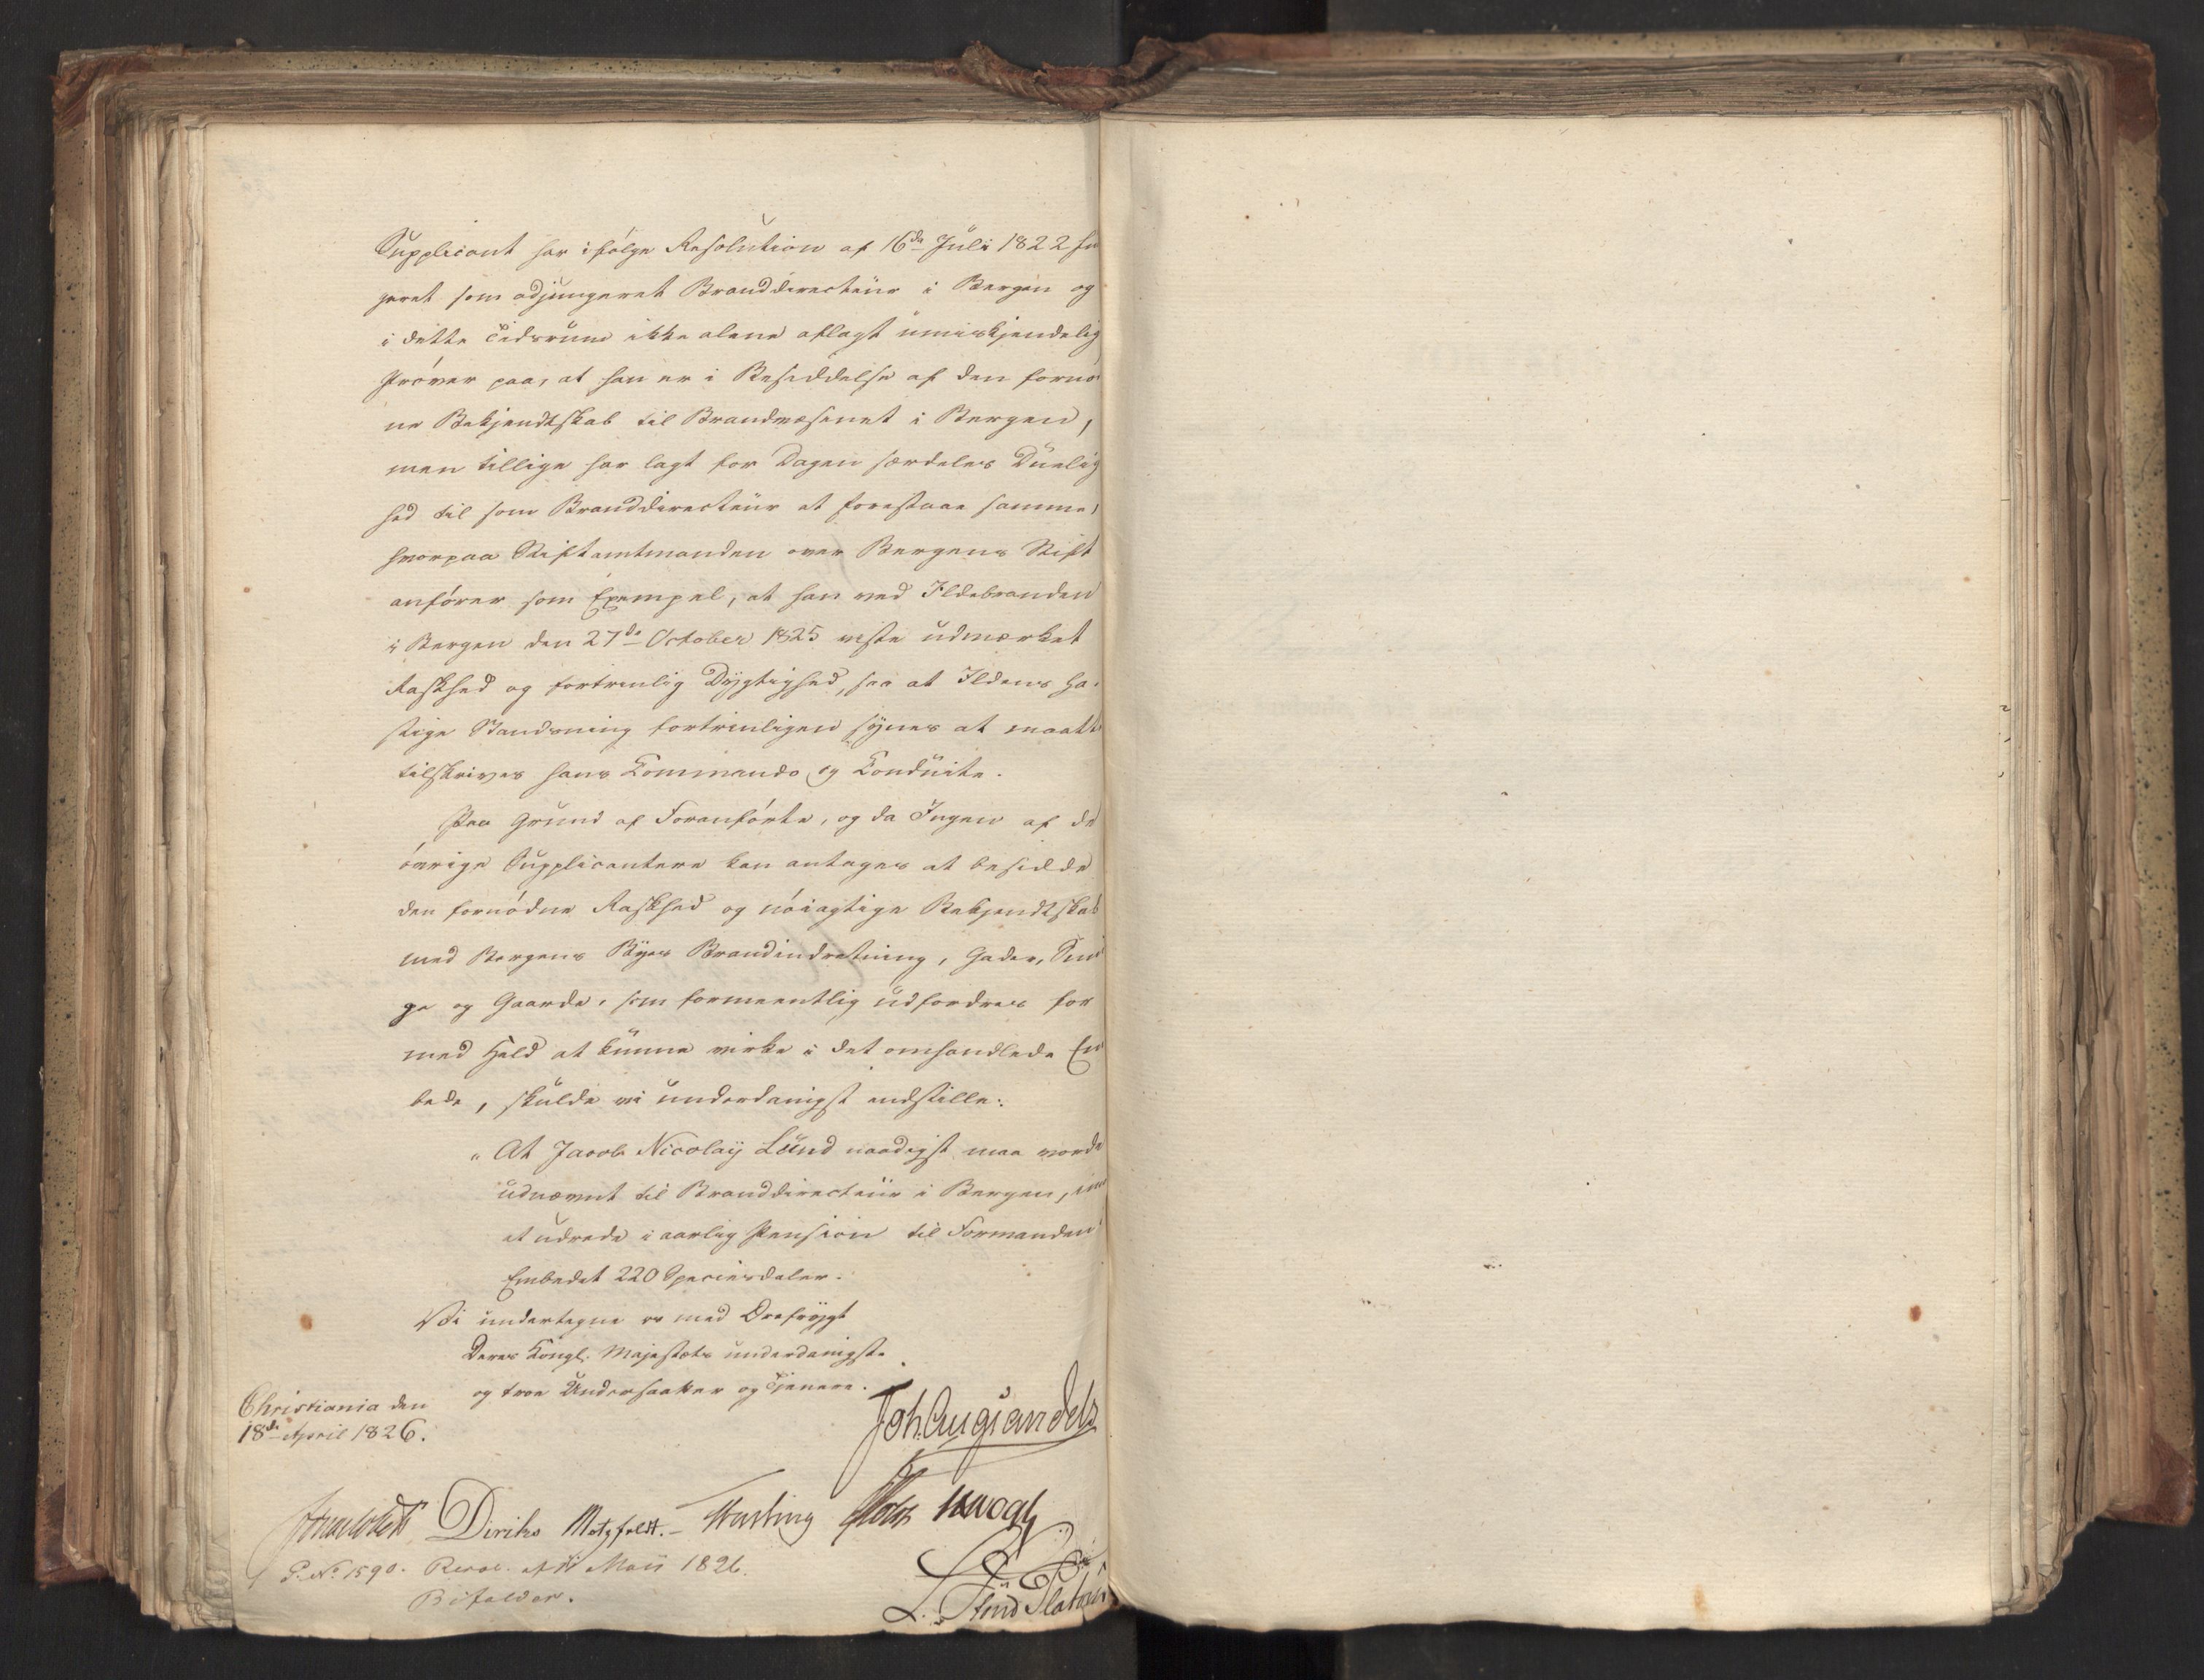 Supplicant har ifølge Resolution af 16de Juli 1822 fun
geret som adjungeret Branddirecteur i Bergen og
i dette Tidsrum ikke alene aflagt umiskjendelig
Prøver paa, at han er i Besiddelse af den fornø
ne Bekjendtskab til Brandvæsenet i Bergen,
men tillige har lagt for Dagen særdeles Duelig
hed til som Branddirecteur at forestaae samme,
hvorpaa Stiftamtmanden over Bergens Stift
anfører som Exempel, at han ved Ildebranden
i Bergen den 27de October 1825 viste udmærket
Raskhed og fortrinlig Dygtighed, saa at Ildens ha-
stige Standsning fortrinligen synes at maatte
tilskrives hans Commando og Conduite.
Paa Grund af Foranførte, og da Ingen af de
øvrige Supplicantere kan antages at besidde
den fornødne Raskhed og nøiagtige Bekjendtskab
med Bergens Byes Brandindretning, Gader, Smu
ge og Gaarde, som formeentlig udfordres for
med Held at kunne virke i det omhandlede Em
bede, skulde vi underdanigst indstille:
"At Jacob Nicolay Lund naadigst maa vorde
udnævnt til Branddirecteur i Bergen, imod
at udrede i aarlig Pension til Formanden i
Embedet 220 Speciesdaler.
Vi undertegne os med Ærefrygt
Deres Kongl. Majestæts underdanigste
og troe Undersaatter og Tjenere.
Christiania den
18de April 1826.
Joh. Aug. Sandels
Diriks Motzfeldt. Fasting Holst
P. No. 1590. Resol. af 11 Maii 1826.
Bifaldes.
L. Stoud Platou